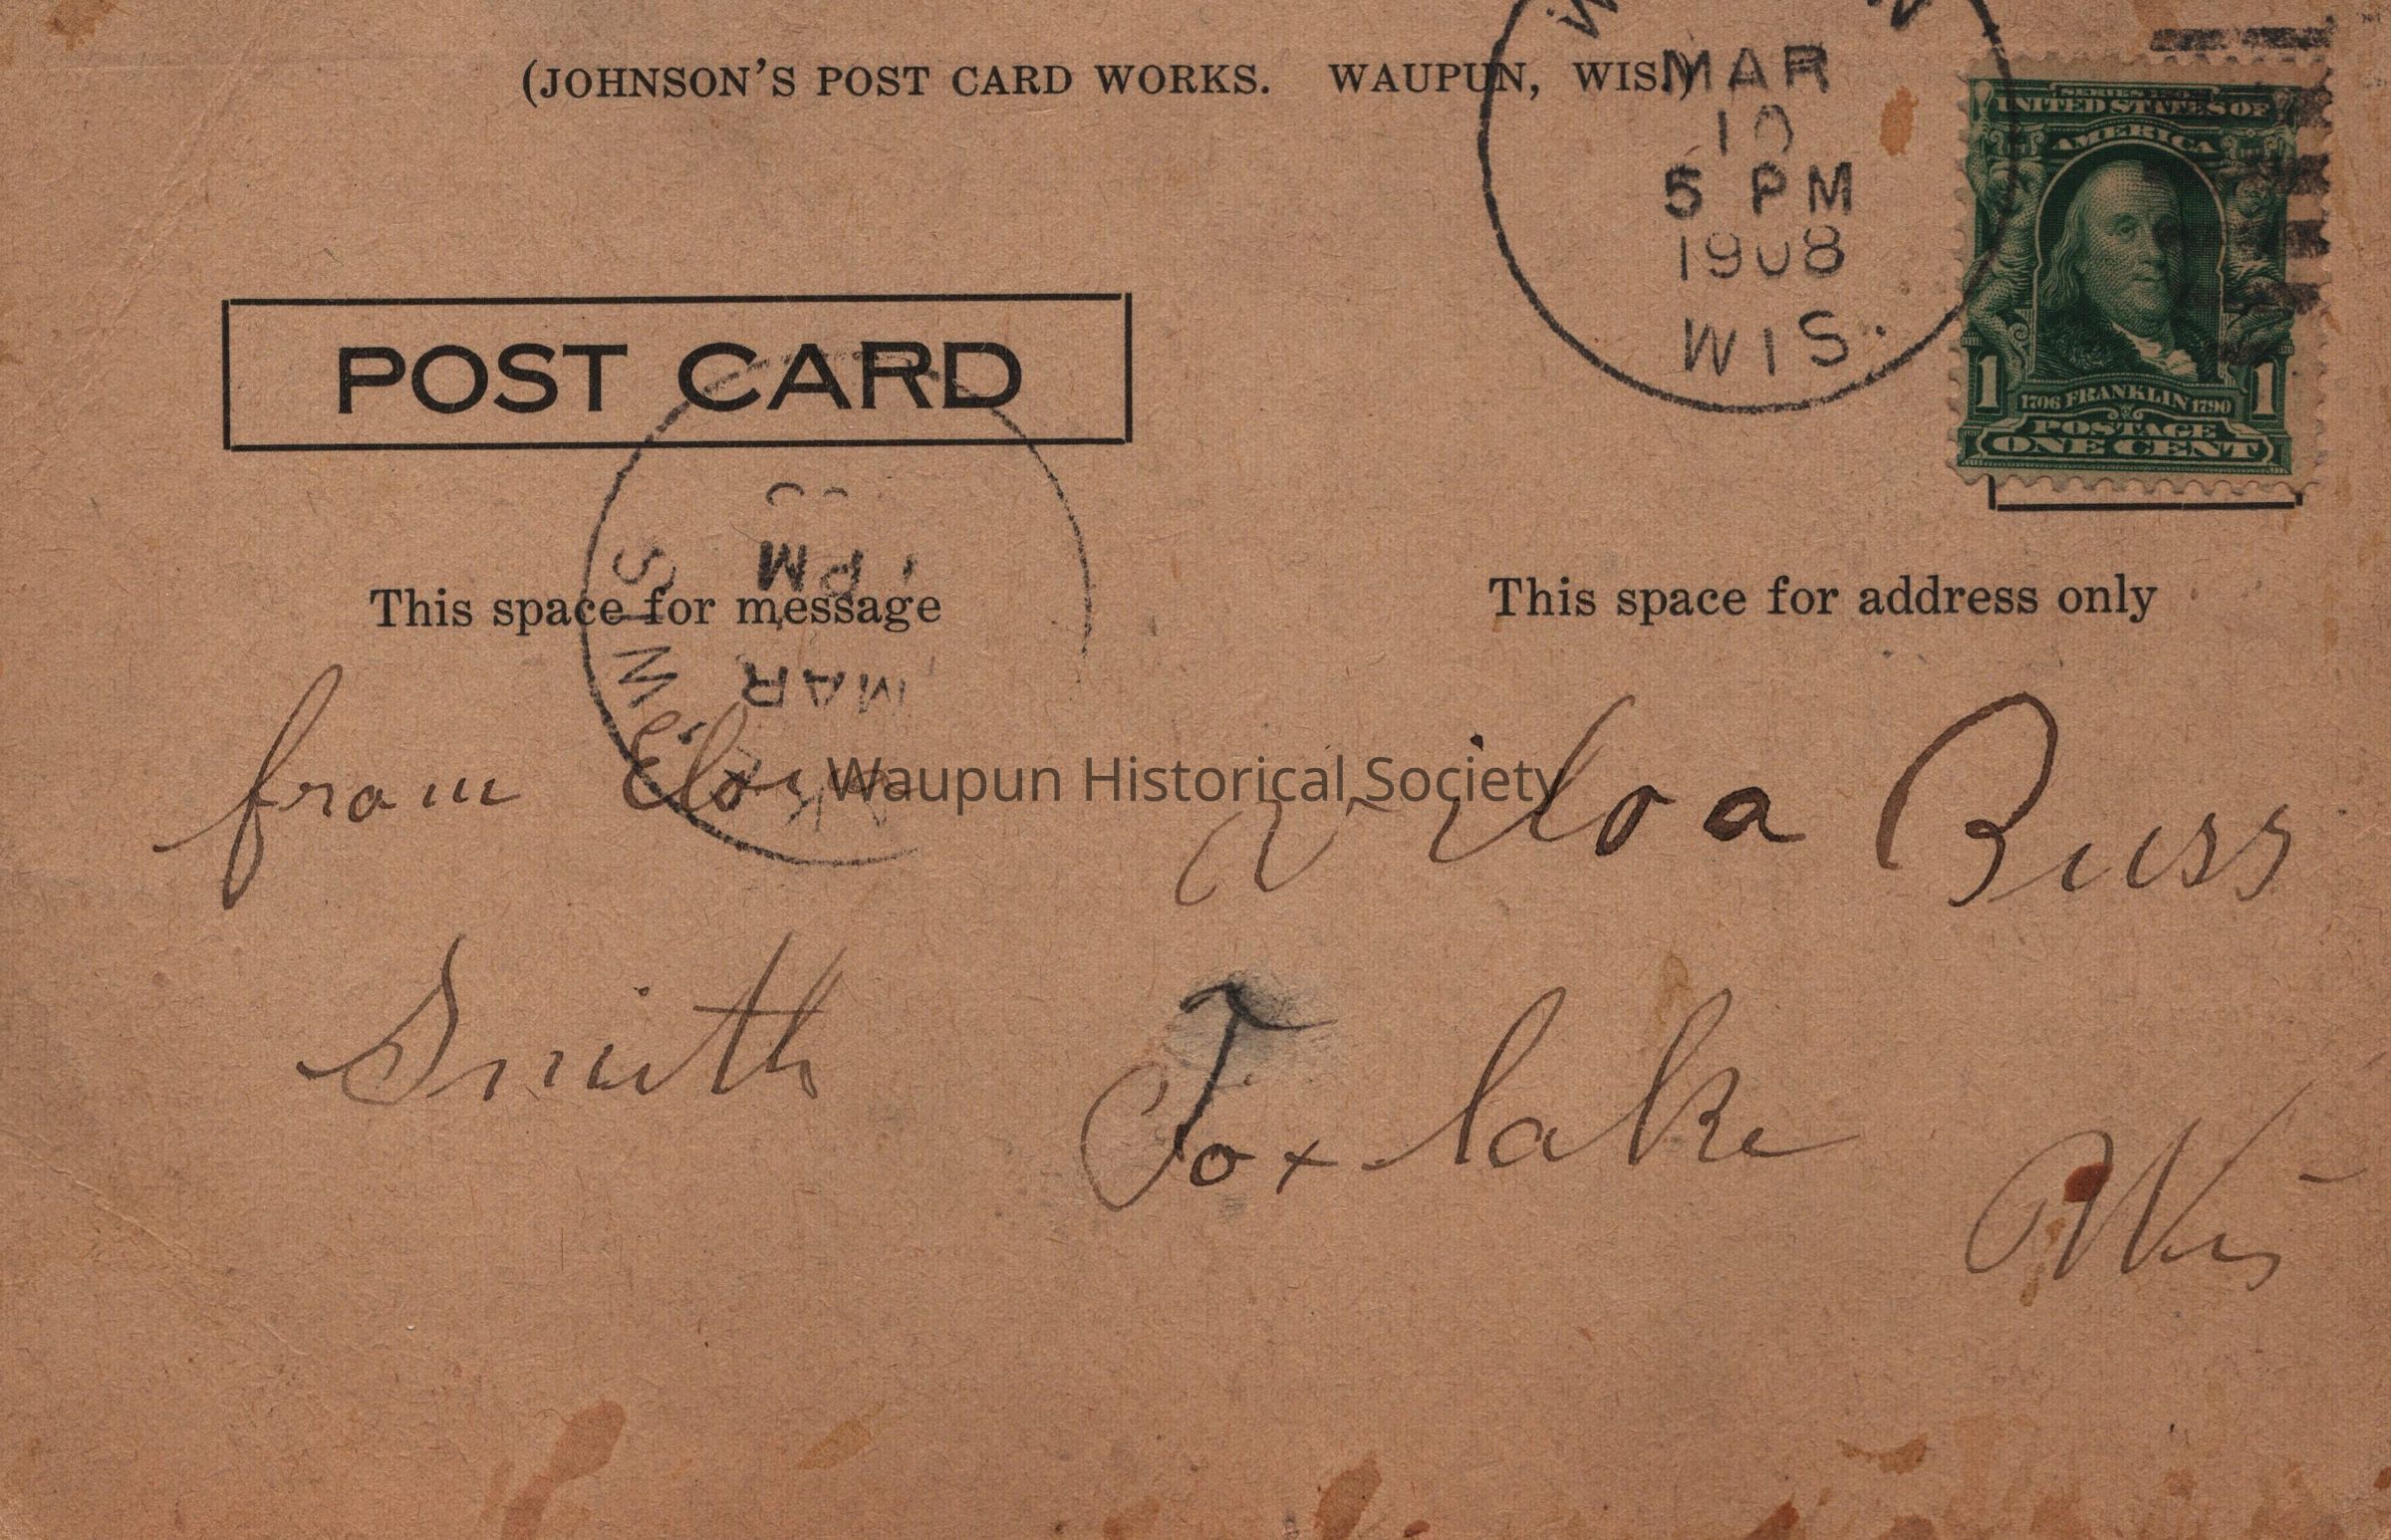 (JOHNSON'S POST CARD WORKS. WAUPUN, WIS.)
MAR
10
5 PM
1908
WIS.
SERIES 1902
UNITED STATES OF
AMERICA
1 1706 FRANKLIN 1790 1
POSTAGE
ONE CENT
POST CARD
PM
MAR
WIS.
This space for message
This space for address only
from
Smith
Buss
Fox lake
Wis
Waupun Historical Society